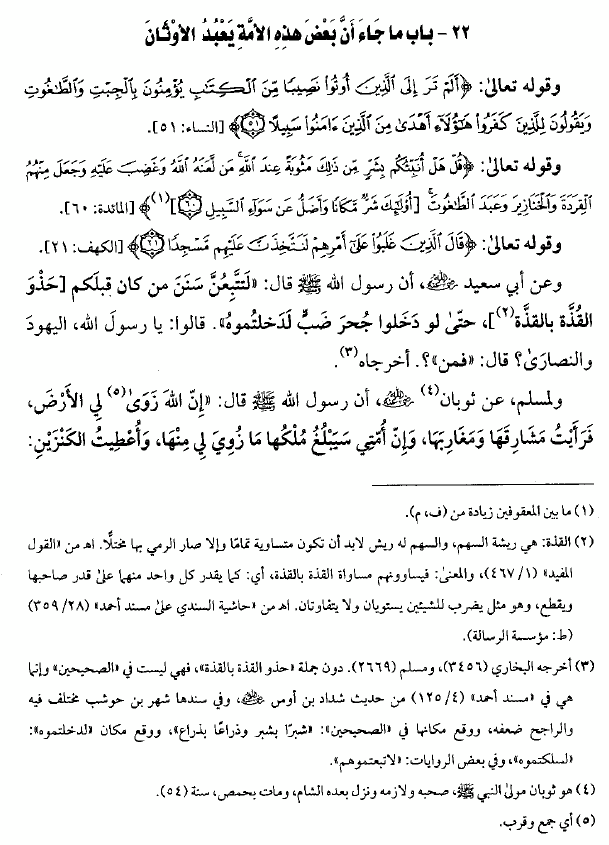 ٢٢ - باب ما جَاءَ أنَّ بَعْضَ هذِهِ الأمَّةِ يَعْبُدُ الأوْثَانَ
وقوله تعالىٰ: ﴿أَلَمْ تَرَ إِلَى ٱلَّذِينَ أُوتُوا نَصِيبًا مِّنَ ٱلْكِتَٰبِ يُؤْمِنُونَ بِٱلْجِبْتِ وَٱلطَّٰغُوتِ
وَيَقُولُونَ لِلَّذِينَ كَفَرُوا هَٰٓؤُلَآءِ أَهْدَىٰ مِنَ ٱلَّذِينَ ءَامَنُوا سَبِيلًا ۝٥١﴾ [النساء: ٥١].
وقوله تعالىٰ: ﴿قُلْ هَلْ أُنَبِّئُكُم بِشَرٍّ مِّن ذَٰلِكَ مَثُوبَةً عِندَ ٱللَّهِ مَن لَّعَنَهُ ٱللَّهُ وَغَضِبَ عَلَيْهِ وَجَعَلَ مِنْهُمُ
ٱلْقِرَدَةَ وَٱلْخَنَازِيرَ وَعَبَدَ ٱلطَّٰغُوتَ [أُوْلَٰٓئِكَ شَرٌّ مَّكَانًا وَأَضَلُّ عَن سَوَآءِ ٱلسَّبِيلِ ۝٦٠](١)﴾ [المائدة: ٦٠].
وقوله تعالىٰ: ﴿قَالَ ٱلَّذِينَ غَلَبُوا عَلَىٰٓ أَمْرِهِمْ لَنَتَّخِذَنَّ عَلَيْهِم مَّسْجِدًا ۝٢١﴾ [الكهف: ٢١].
وعن أبي سعيد رضي الله عنه، أن رسول الله ﷺ قال: «لَتَتَّبِعُنَّ سَنَنَ من كان قبلَكم [حَذْوَ
القُذَّة بالقذَّة(٢)]، حتّىٰ لو دَخَلوا جُحرَ ضَبٍّ لَدَخلتُموهُ». قالوا: يا رسولَ الله، اليهودَ
والنصارَىٰ؟ قال: «فمن»؟. أخرجاه(٣).
ولمسلم، عن ثوبان(٤) رضي الله عنه، أن رسول الله ﷺ قال: «إنّ اللهَ زَوَىٰ(٥) لِي الأَرْضَ،
فَرَأَيْتُ مَشَارِقَهَا وَمَغَارِبَهَا، وَإِنَّ أُمَّتِي سَيَبْلُغُ مُلْكُها مَا زُوِيَ لِي مِنْهَا، وَأُعْطِيتُ الكَنْزَيْنِ:
(١) ما بين المعقوفين زيادة من (ف، م).
(٢) القذة: هي ريشة السهم، والسهم له ريش لابد أن تكون متساوية تمامًا وإلا صار الرمي بها مختلًّا. اهـ من «القول
المفيد» (١/ ٤٦٧)، والمعنىٰ: فيساوونهم مساواة القذة بالقذة، أي: كما يقدر كل واحد منهما علىٰ قدر صاحبها
ويقطع، وهو مثل يضرب للشيئين يستويان ولا يتفاوتان. اهـ من «حاشية السندي علىٰ مسند أحمد» (٢٨/ ٣٥٩)
(ط: مؤسسة الرسالة).
(٣) أخرجه البخاري (٣٤٥٦)، ومسلم (٢٦٦٩). دون جملة «حذو القذة بالقذة»، فهي ليست في «الصحيحين» وإنما
هي في «مسند أحمد» (٤/ ١٢٥) من حديث شداد بن أوس رضي الله عنه، وفي سندها شهر بن حوشب مختلف فيه
والراجح ضعفه، ووقع مكانها في «الصحيحين»: «شبرًا بشبر وذراعًا بذراع»، ووقع مكان «لدخلتموه»:
«لسلكتموه»، وفي بعض الروايات: «لاتبعتموهم».
(٤) هو ثوبان مولىٰ النبي ﷺ، صحبه ولازمه ونزل بعده الشام، ومات بحمص، سنة (٥٤).
(٥) أي جمع وقرب.